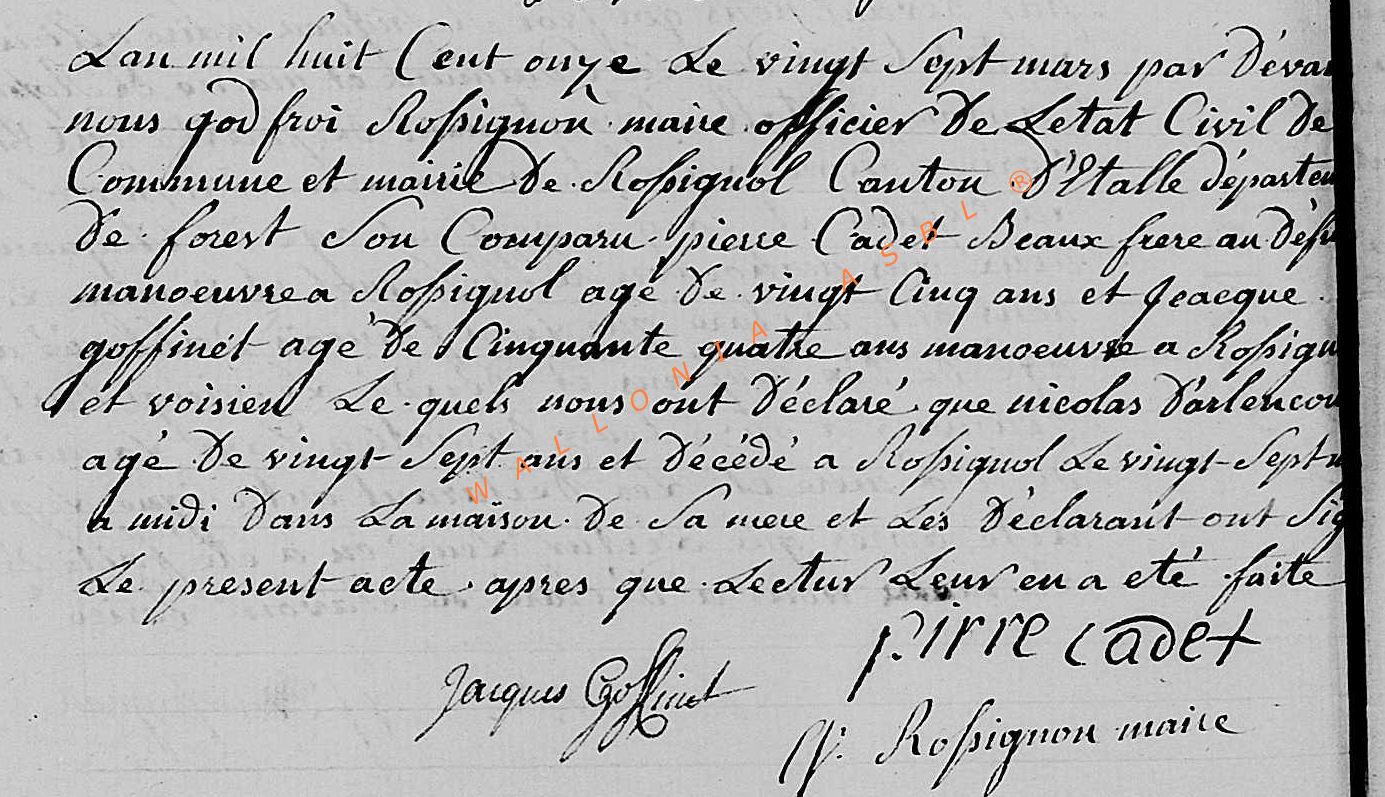 Lan mil huit Cent onze Le vingt Sept mars par Dévan
nous godfroi Rossignon maire officier De Letat Civil De
Commune et mairie De Rossignol Canton D'Etalle départem
De forest Son Comparu pierre Cadet Beaux frere au Défu
manoeuvre a Rossignol agé De vingt Cinq ans et Jeacque
goffinet agé De Cinquante quatre ans manoeuvre a Rossign
et voisien Le quels nous ont Déclaré que nicolas Darlencou
agé De vingt Sept ans et Décédé a Rossignol Le vingt Sept m
a midi Dans La maison De Sa mere et Les Déclarant ont Sig
Le present acte apres que Lectur Leur en a eté faite
pirre cadet
Jacques Goffinet
Rossignon maire
WALLONIA ASBL ®